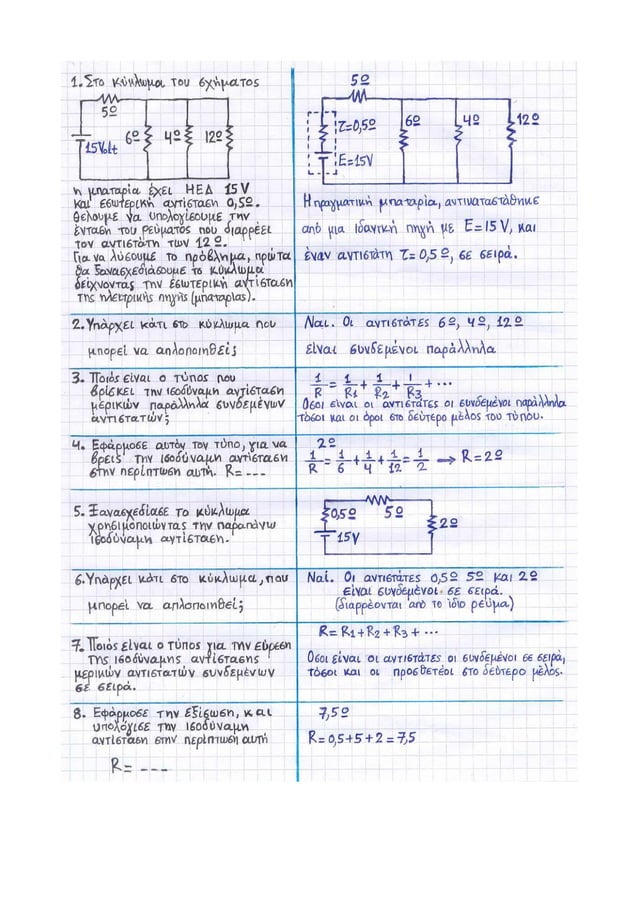 1. Στο κύκλωμα του σχήματος
5Ω
15Volt
6Ω
4Ω
12Ω
η μπαταρία έχει ΗΕΔ 15 V
και εσωτερική αντίσταση 0,5Ω.
θέλουμε να υπολογίσουμε την
ένταση του ρεύματος που διαρρέει
τον αντιστάτη των 12 Ω.
Για να λύσουμε το πρόβλημα, πρώτα
θα ξανασχεδιάσουμε το κύκλωμα
δείχνοντας την εσωτερική αντίσταση
της ηλεκτρικής πηγής (μπαταρίας).
5Ω
τ=0,5Ω
E=15V
6Ω
4Ω
12Ω
Η πραγματική μπαταρία, αντικαταστάθηκε
από μια ιδανική πηγή με E=15 V, και
έναν αντιστάτη τ= 0,5 Ω, σε σειρά.
2. Υπάρχει κάτι στο κύκλωμα που
μπορεί να απλοποιηθεί;
Ναι. Οι αντιστάτες 6Ω, 4Ω, 12Ω
είναι συνδεμένοι παράλληλα
3. Ποιός είναι ο τύπος που
βρίσκει την ισοδύναμη αντίσταση
μερικών παράλληλα συνδεμένων
αντιστατών;
1/R = 1/R1 + 1/R2 + 1/R3 + ...
Όσοι είναι οι αντιστάτες οι συνδεμένοι παράλληλα
τόσοι και οι όροι στο δεύτερο μέλος του τύπου.
4. Εφάρμοσε αυτόν τον τύπο, για να
βρεις την ισοδύναμη αντίσταση
στην περίπτωση αυτή. R= ---
2Ω
1/R = 1/6 + 1/4 + 1/12 = 1/2 → R=2Ω
5. Ξανασχεδίασε το κύκλωμα
χρησιμοποιώντας την παραπάνω
ισοδύναμη αντίσταση.
0,5Ω
5Ω
2Ω
15V
6. Υπάρχει κάτι στο κύκλωμα, που
μπορεί να απλοποιηθεί;
Ναί. Οι αντιστάτες 0,5Ω 5Ω και 2Ω
είναι συνδεμένοι σε σειρά.
(διαρρέονται από το ίδιο ρεύμα)
7. Ποιός είναι ο τύπος για την εύρεση
της ισοδύναμης αντίστασης
μερικών αντιστατών συνδεμένων
σε σειρά.
R= R1+R2+R3 + ...
Όσοι είναι οι αντιστάτες οι συνδεμένοι σε σειρά,
τόσοι και οι προσθετέοι στο δεύτερο μέλος.
8. Εφάρμοσε την εξίσωση, και
υπολόγισε την ισοδύναμη
αντίσταση στην περίπτωση αυτή
R= ---
7,5Ω
R=0,5+5+2=7,5